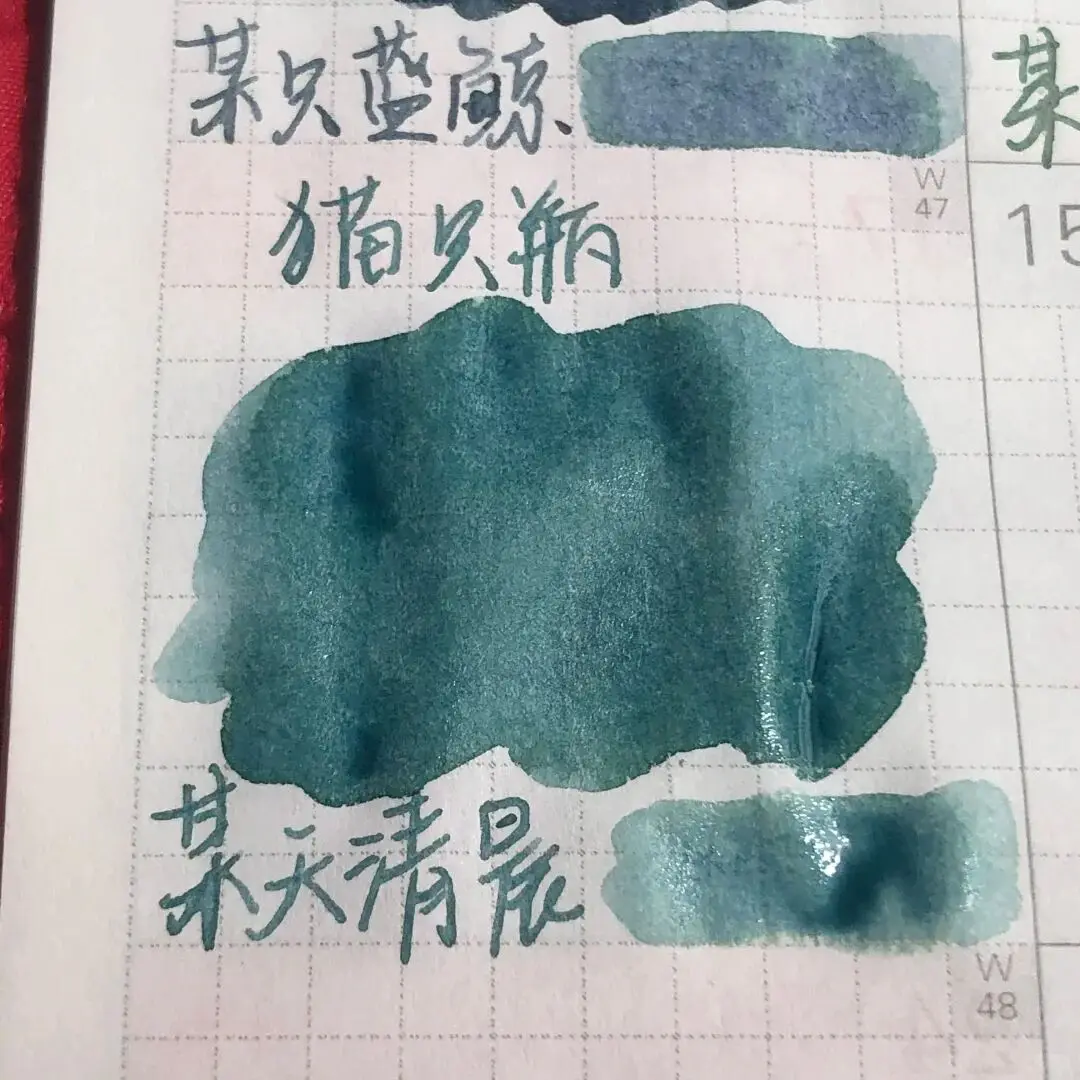 某只蓝鲸、
某
W
47
猫只瓶
15
某天清晨
W
48